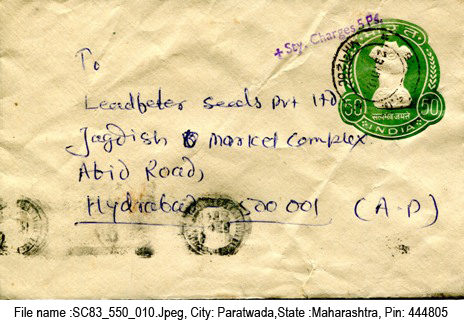 + Sty. Charges 5 Ps.
50 50
सत्यमेव जयते
INDIA
To
Leadbeter seeds Pvt ltd
Jagdish market complex
Abid Road,
Hydrabad 500 001 (A.P)
File name :SC83_550_010.Jpeg, City: Paratwada,State :Maharashtra, Pin: 444805